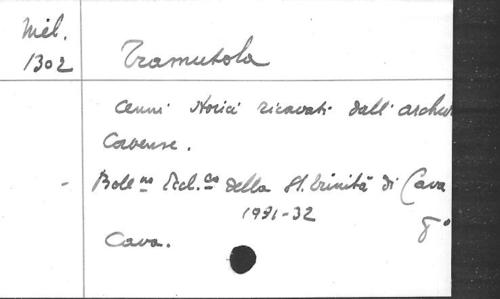 Mel.
1302
Tramutola
Cenni storici ricavati dall'archiv
Cavense.
- Boll.no Eccl.co della SS. Trinità di Cava
1931-32
8°
Cava.